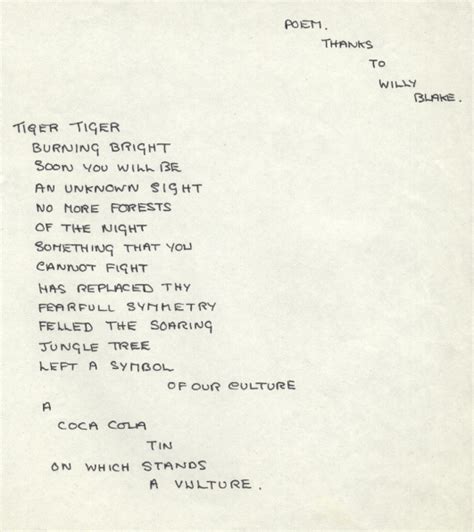 POEM.
THANKS
TO
WILLY
BLAKE.
TIGER TIGER
BURNING BRIGHT
SOON YOU WILL BE
AN UNKNOWN SIGHT
NO MORE FORESTS
OF THE NIGHT
SOMETHING THAT YOU
CANNOT FIGHT
HAS REPLACED THY
FEARFULL SYMMETRY
FELLED THE SOARING
JUNGLE TREE
LEFT A SYMBOL
OF OUR CULTURE
A
COCA COLA
TIN
ON WHICH STANDS
A VULTURE.